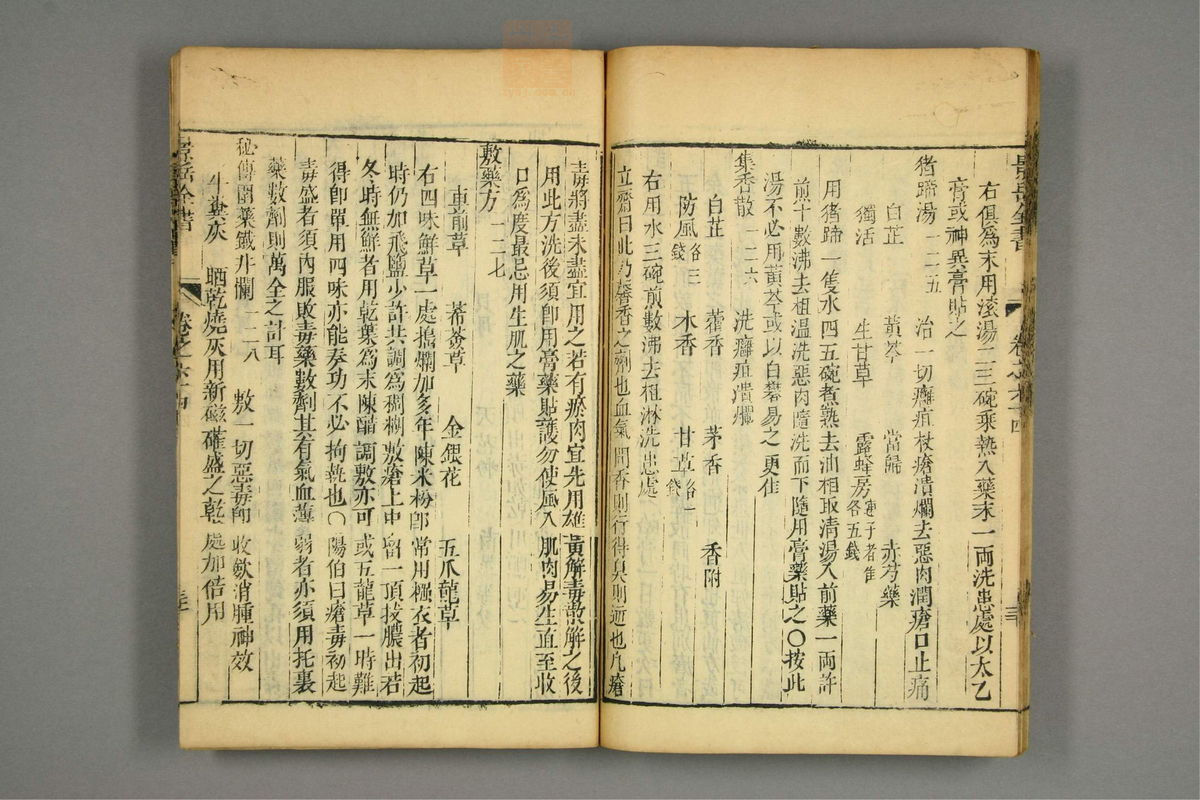 景岳全書
卷之六十四
右俱為末用滚湯二三碗乗熱入藥末一両洗患處以太乙
膏或神異膏貼之
猪蹄湯一二五 治一切癰疽杖瘡潰爛去惡肉潤瘡口止痛
白芷 黄芩 當歸 赤芍藥
獨活 生甘草 露蜂房連子者佳各五錢
用猪蹄一隻水四五碗煮熟去油柤取清湯入前藥一両許
煎十數沸去柤温洗惡肉隨洗而下隨用膏藥貼之〇按此
湯不必用黄芩或以白礬易之更佳
集香散一二六 洗癰疽潰爛
白芷 藿香 茅香 香附
防風各三錢 木香 甘草各一錢
右用水三碗煎數沸去柤淋洗患處
立齋曰此乃馨香之劑也血氣聞香則行得臭則逆也凡瘡
毒將盡未盡宜用之若有瘀肉宜先用雄黄解毒散解之後
用此方洗後須卽用膏藥貼護勿使風入肌肉易生直至收
口為度最忌用生肌之藥
敷藥方一二七
車前草 豨薟草 金銀花 五爪龍草
右四味鮮草一處搗爛加多年陳米粉卽常用糨衣者初起
時仍加飛鹽少許共調為稠糊敷瘡上中留一頂拔膿出若
冬時無鮮者用乾葉為末陳醋調敷亦可或五龍草一時難
得卽單用四味亦能奏功不必拘執也〇陽伯曰瘡毒初起
毒盛者須內服敗毒藥數劑其有氣血薄弱者亦須用托裏
藥數劑則萬全之計耳
秘傳圍藥鐵井欄一二八 敷一切惡毒卽收斂消腫神效
牛糞灰 晒乾燒灰用新磁確盛之乾處加倍用
景岳全書
卷之六十四